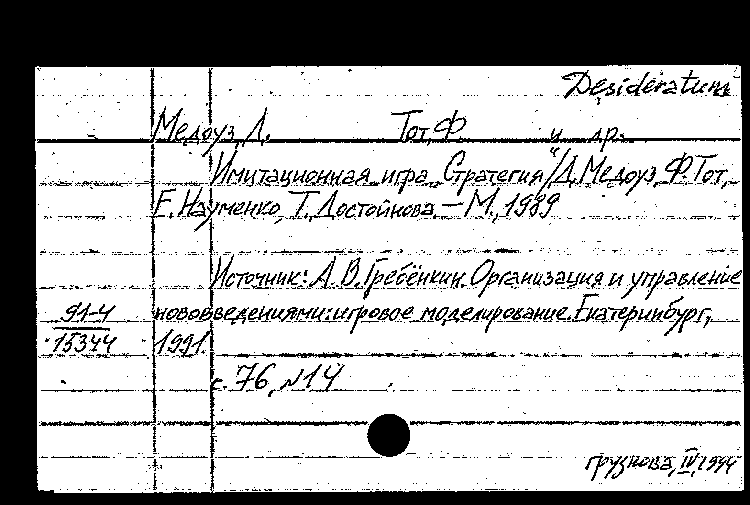 Desideratum
Медоуз, Д. Тот, Ф. и др.
Имитационная игра „Стратегия"/Д. Медоуз, Ф. Тот,
Е. Науменко, Т. Достойнова. — М., 1989
Источник: А. В. Гребёнкин. Организация и управление
91-4 нововведениями: игровое моделирование. Екатеринбург,
15344 1991.
с. 76, №14
Грузнова, IV, 1994